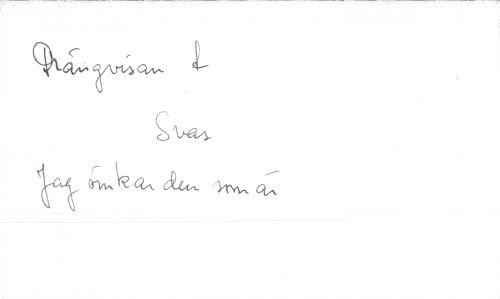 Drängvisan
Svar
Jag ömkar den som är